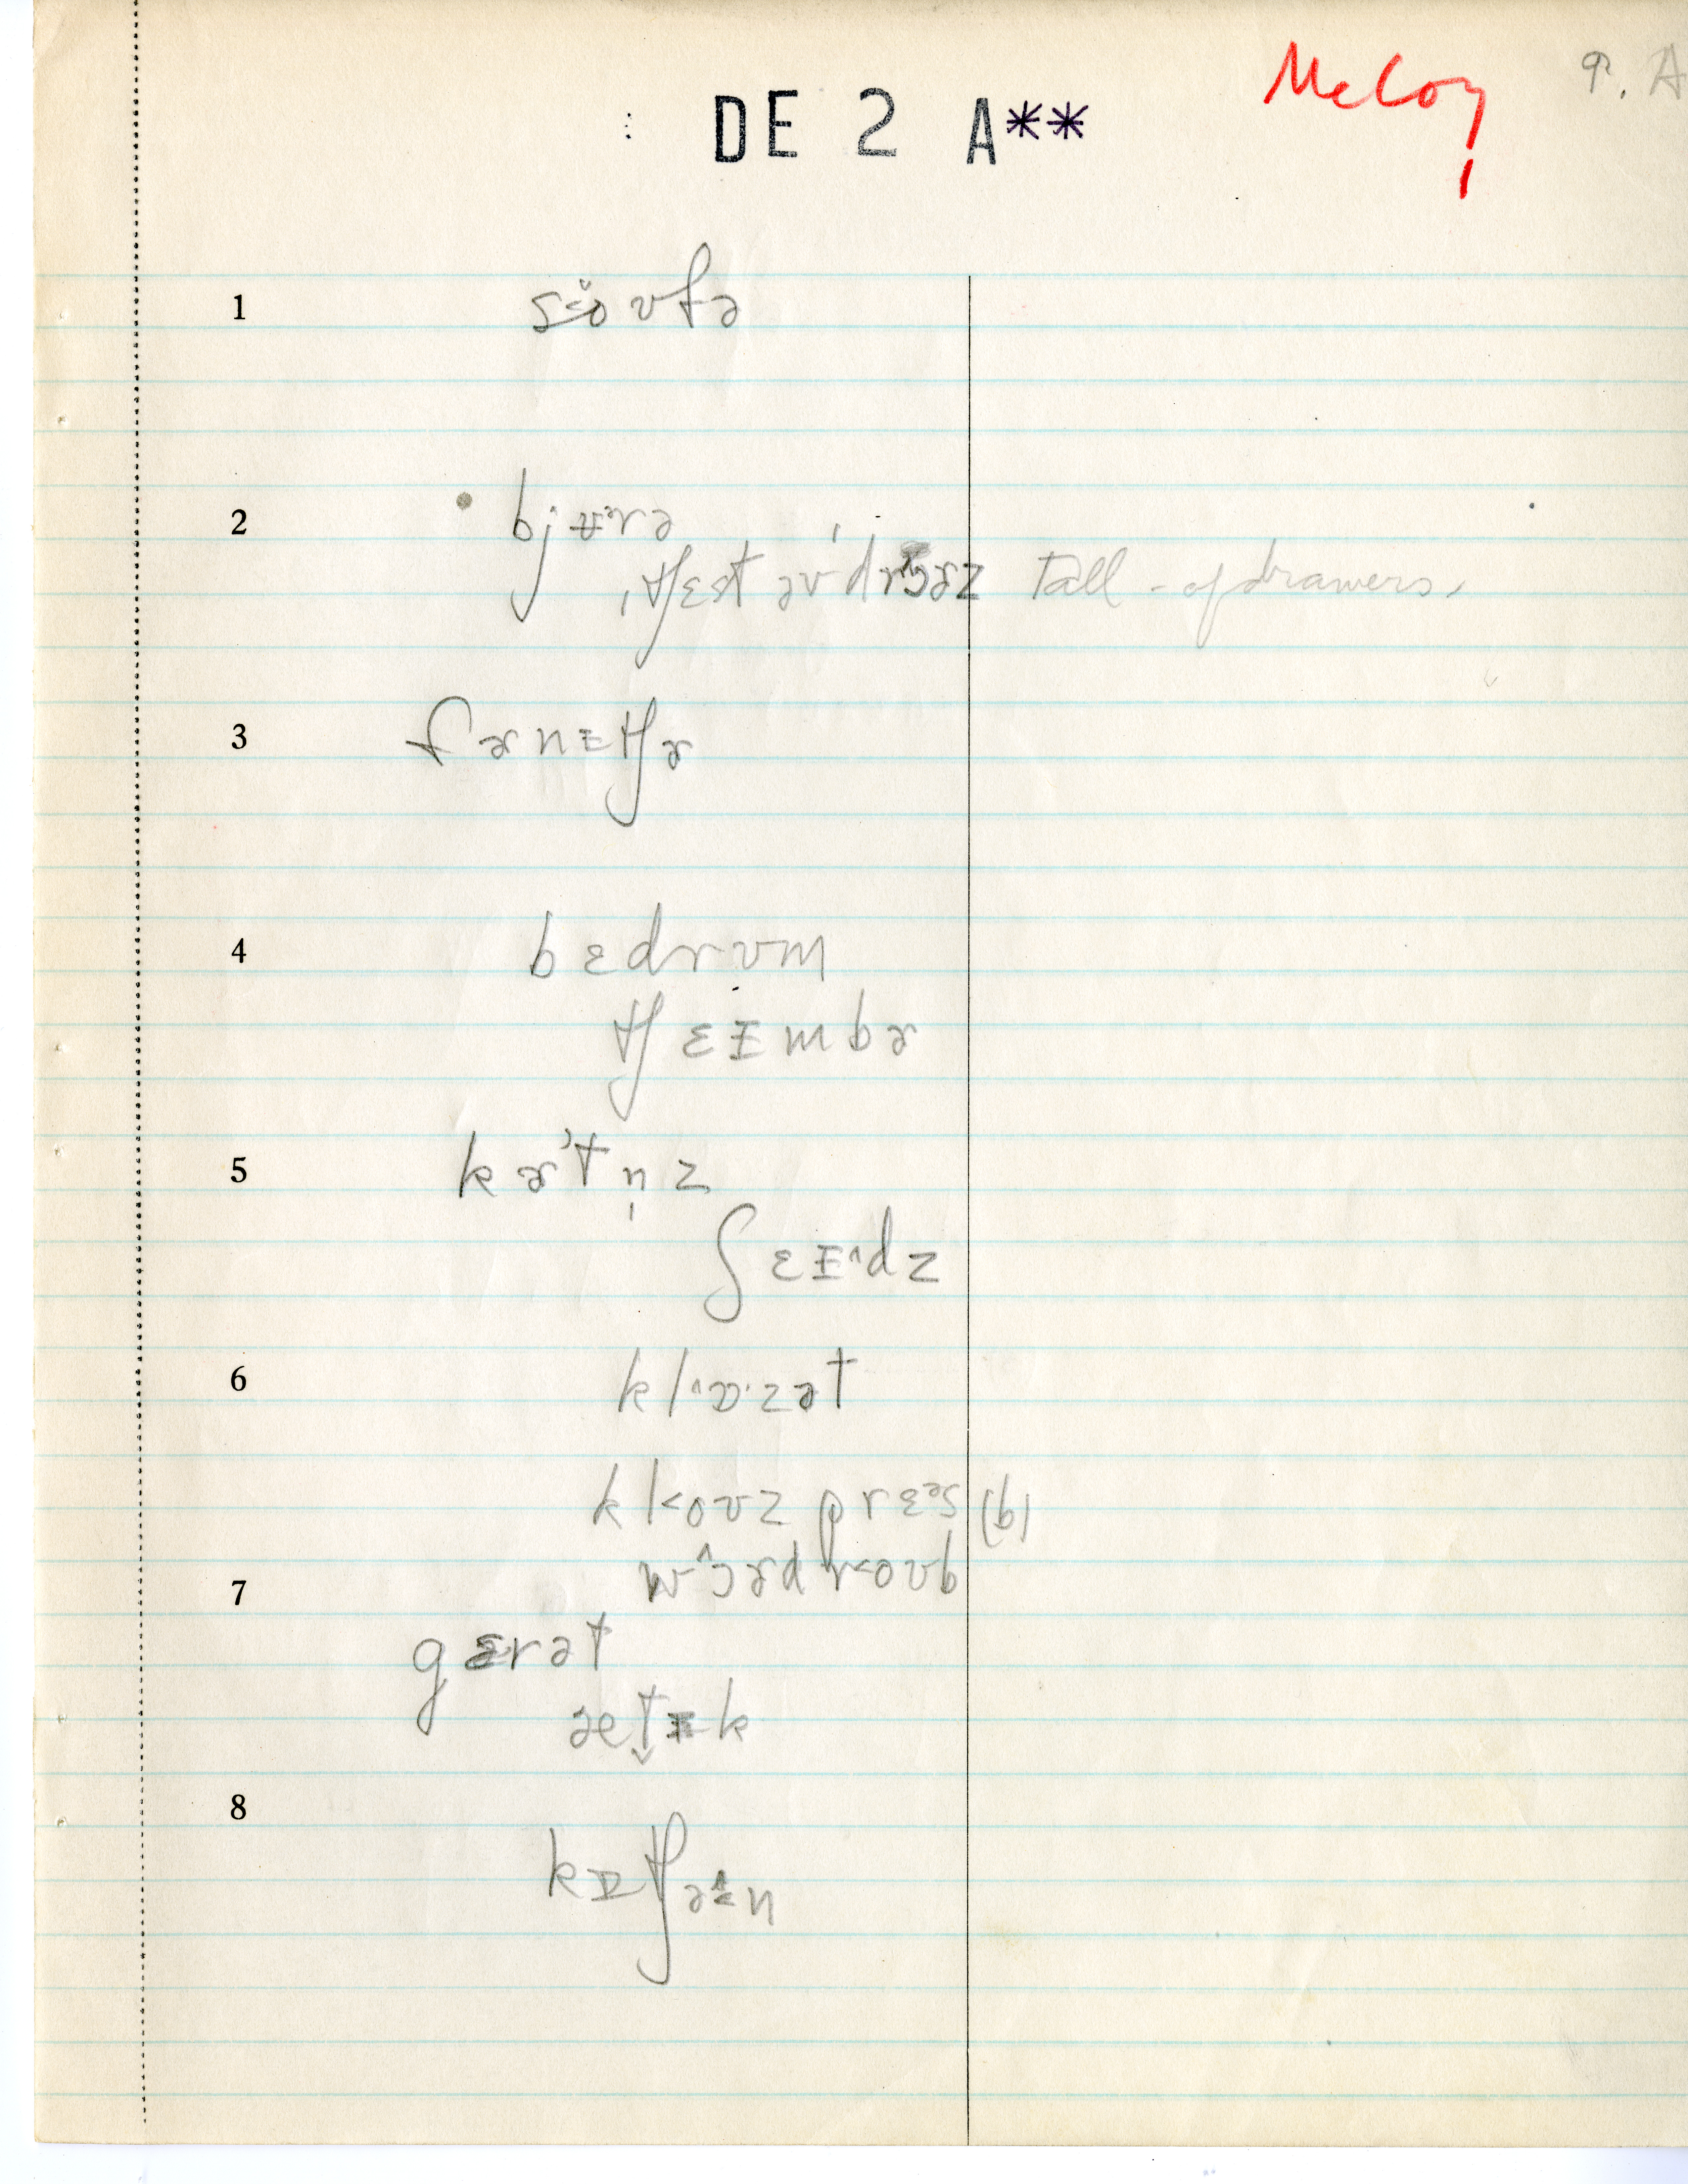 McCoy
DE 2 A**
1 so̤ʊfə
2 bjʉrə
ˌtʃɛst əv ˈdrɔɚz Tall - of drawers,
3 fɚnɪtʃɚ
4 bɛdrʊm
tʃɛɪmbɚ
5 kɚtn̩z
ʃɛɪ^dz
6 kl^ɒ·zət
klo<ʊz prɛəs (b)
w^ɔɚdr<oʊb
7 gærət
æt̬ɪk
8 kɪtʃən